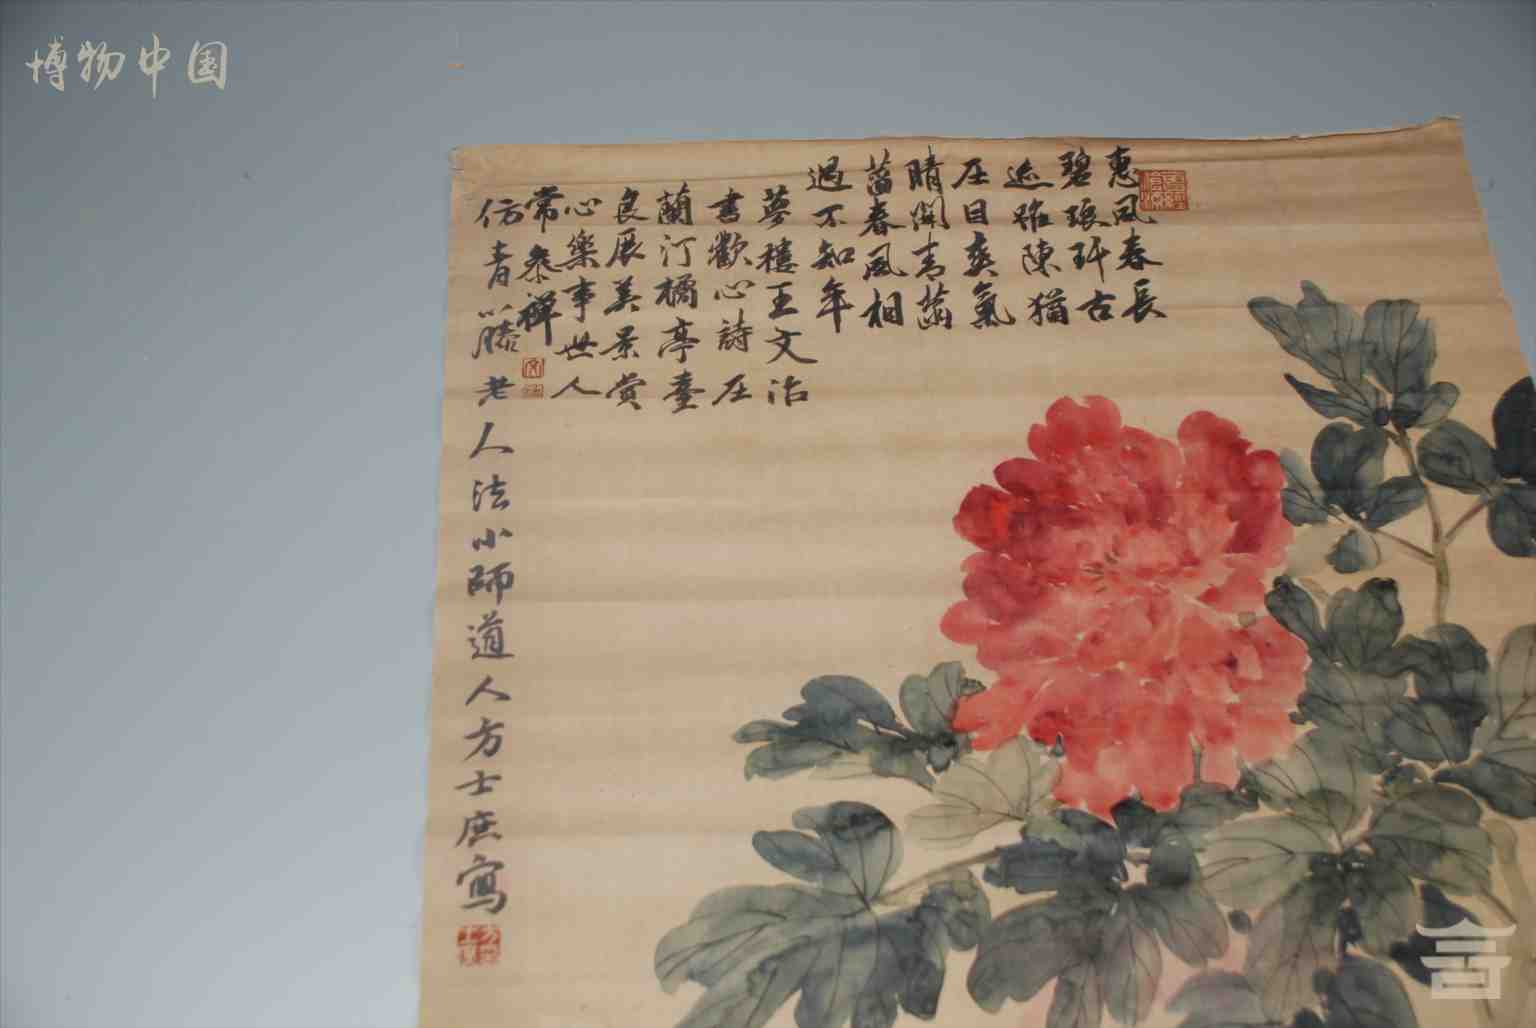 博物中国
惠风春長
碧琅玕古
迹雖陳猶
在目爽氣
晴開青菡
萏春風相
過不知年
夢樓王文治
書歡心詩在
蘭汀橘亭臺
良辰美景賞
心樂事世人
常参禅
仿青藤老人法小師道人方士庶寫